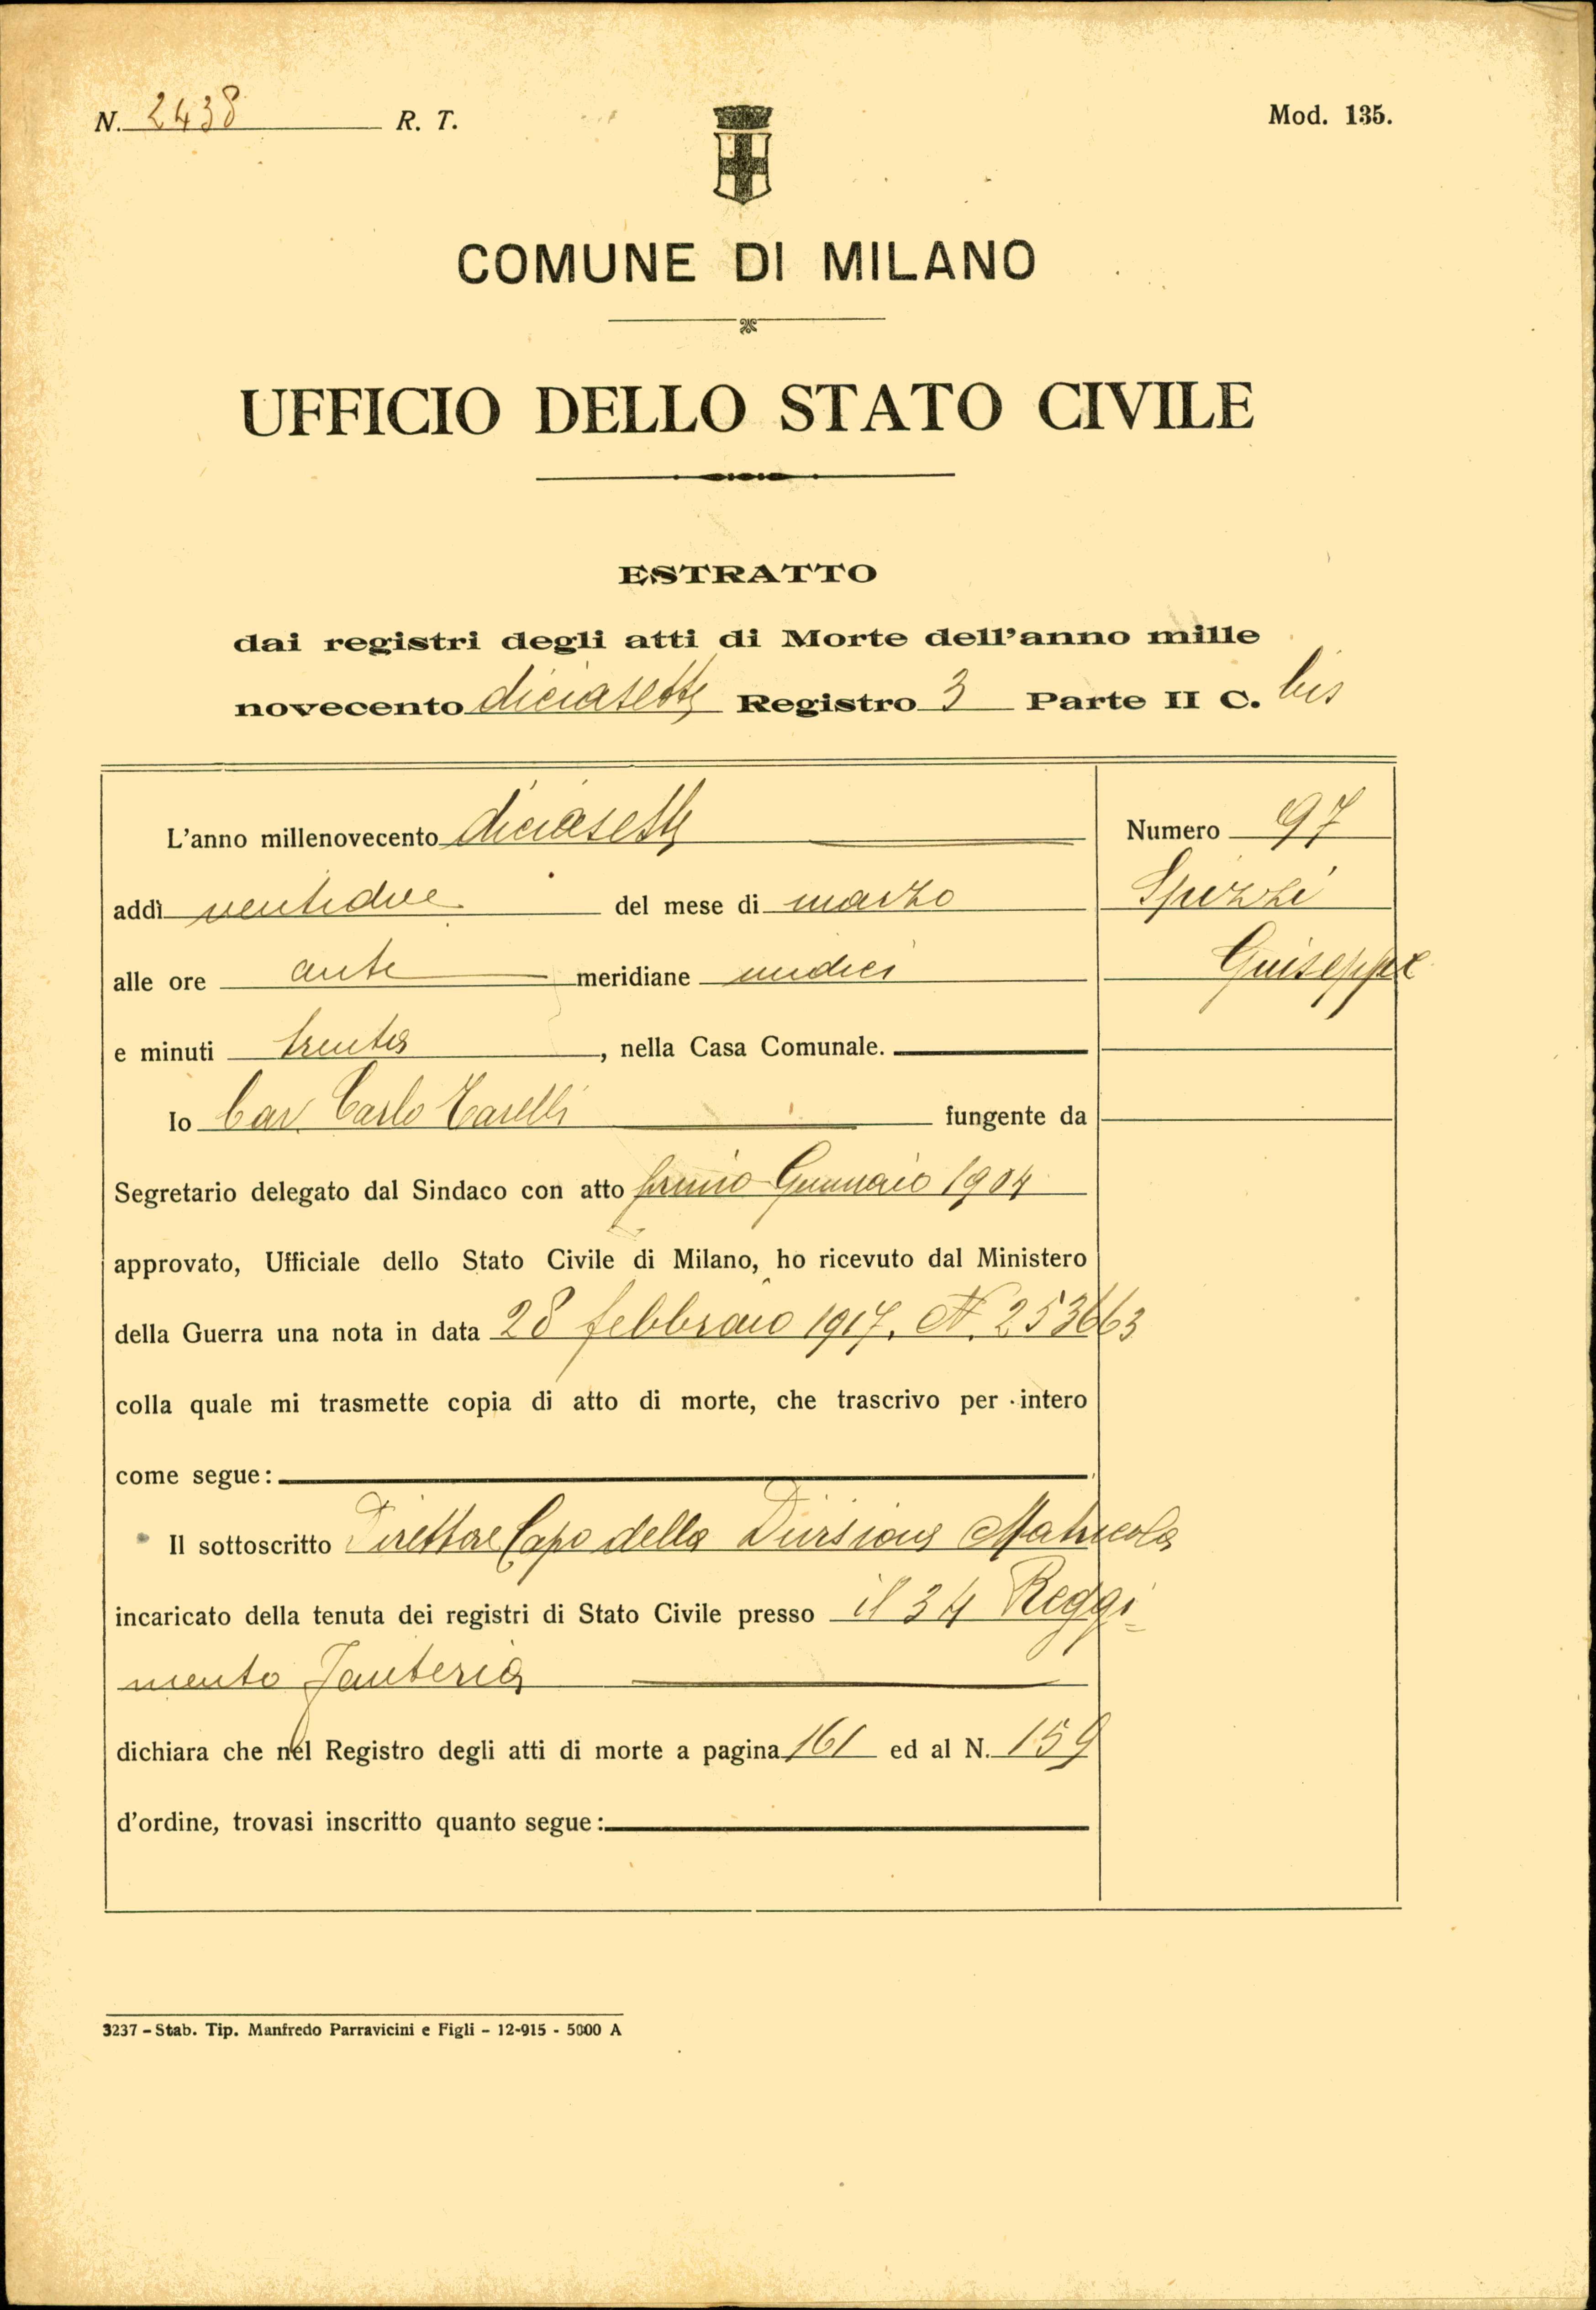 N. 2438 R. T.
Mod. 135.
COMUNE DI MILANO
UFFICIO DELLO STATO CIVILE
ESTRATTO
dai registri degli atti di Morte dell'anno mille
novecento diciasette Registro 3 Parte II C. bis
L'anno millenovecento diciasette
Numero 97
addì ventidue del mese di marzo
Spizzi
alle ore ante meridiane undici
Guiseppe
e minuti trenta, nella Casa Comunale.
Io Cav. Carlo Tarelli fungente da
Segretario delegato dal Sindaco con atto primo Gennaio 1904
approvato, Ufficiale dello Stato Civile di Milano, ho ricevuto dal Ministero
della Guerra una nota in data 28 febbraio 1917. N. 253663
colla quale mi trasmette copia di atto di morte, che trascrivo per intero
come segue:
Il sottoscritto Direttore Capo della Divisione Matricola
incaricato della tenuta dei registri di Stato Civile presso il 34 Reggi=
mento Fanteria
dichiara che nel Registro degli atti di morte a pagina 161 ed al N. 159
d'ordine, trovasi inscritto quanto segue:
3237 – Stab. Tip. Manfredo Parravicini e Figli – 12-915 - 5000 A